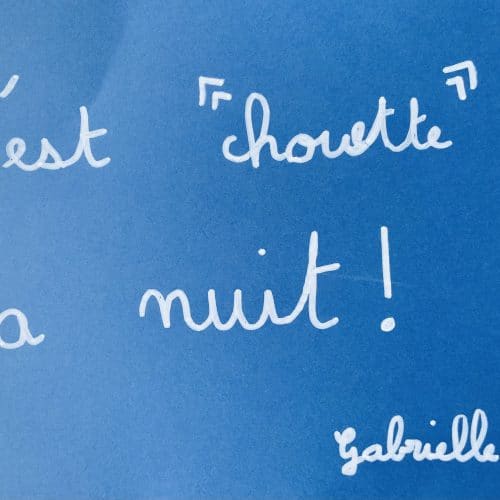 'est « chouette »
a nuit !
Gabrielle